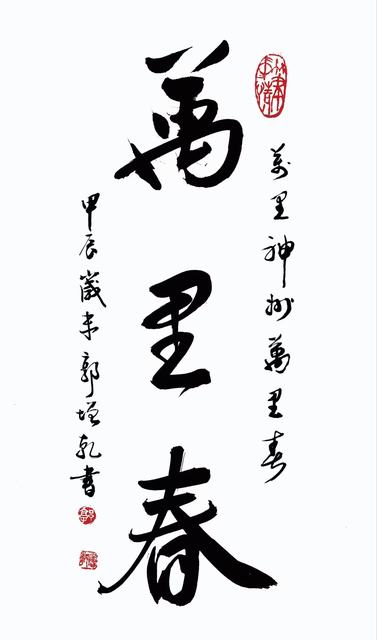 萬里神州萬里春
萬里春
甲辰歲末郭增乾書